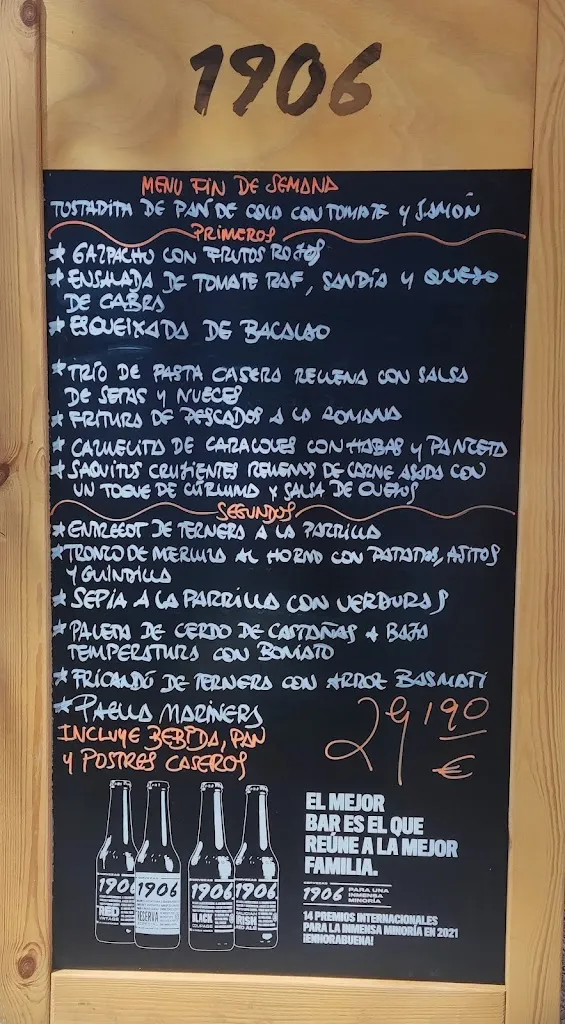 1906
MENU FIN DE SEMANA
TOSTADITA DE PAN DE COCO CON TOMATE Y JAMÓN
PRIMEROS
* GAZPACHO CON FRUTOS ROJOS
* ENSALADA DE TOMATE RAF, SANDÍA Y QUESO
DE CABRA
* ESQUEIXADA DE BACALAO
* TRÍO DE PASTA CASERA RELLENA CON SALSA
DE SETAS Y NUECES
* FRITURA DE PESCADOS A LA ROMANA
* CAZUELITA DE CARACOLES CON HABAS Y PANCETA
* SAQUITOS CRUJIENTES RELLENOS DE CARNE ASADA CON
UN TOQUE DE CÚRCUMA Y SALSA DE QUESOS
SEGUNDOS
* ENTRECOT DE TERNERA A LA PARRILLA
* TRONCO DE MERLUZA AL HORNO CON PATATAS, AJITOS
Y GUINDILLA
* SEPIA A LA PARRILLA CON VERDURAS
* PALETA DE CERDO DE CASTAÑAS A BAJA
TEMPERATURA CON BONIATO
* FRICANDÓ DE TERNERA CON ARROZ BASMATI
* PAELLA MARINERA
29,90
€
INCLUYE BEBIDA, PAN
Y POSTRES CASEROS
1906 1906 1906 1906
RED VINTAGE
RESERVA
BLACK COUPAGE
IRISH RED ALE
EL MEJOR
BAR ES EL QUE
REÚNE A LA MEJOR
FAMILIA.
CERVEZAS
1906 PARA UNA
INMENSA
MINORÍA
14 PREMIOS INTERNACIONALES
PARA LA INMENSA MINORÍA EN 2021
¡ENHORABUENA!